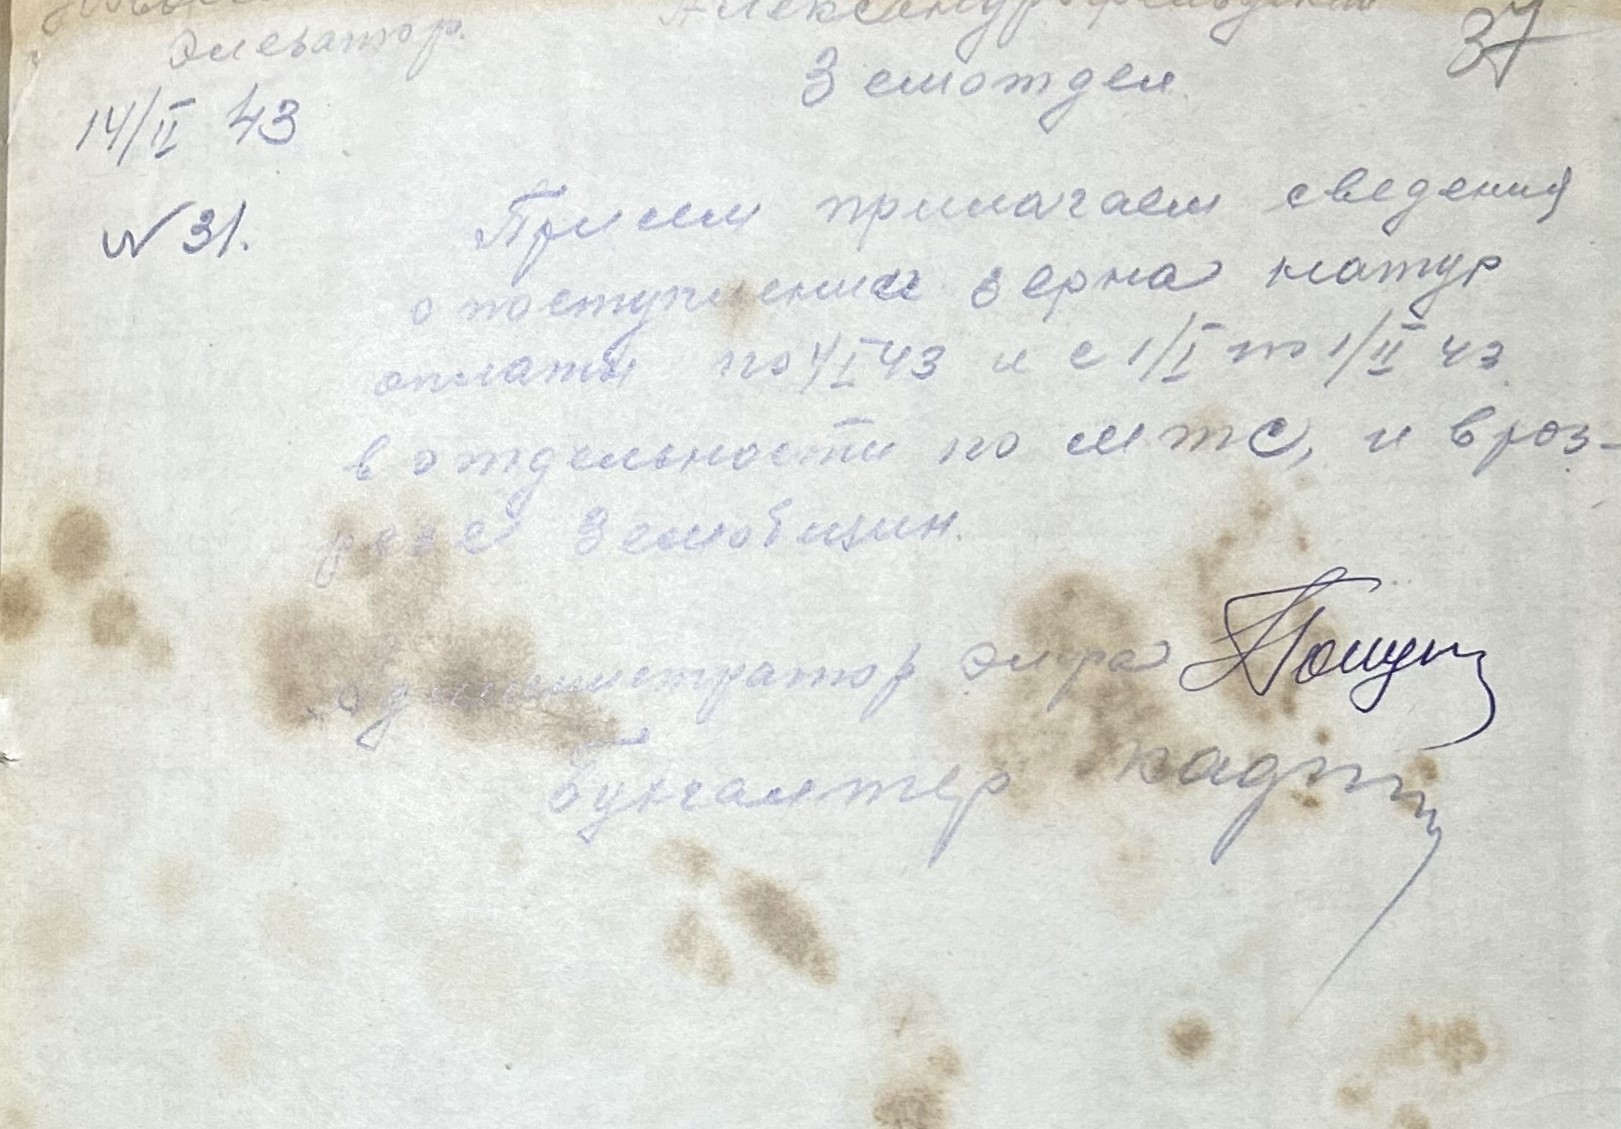 Элеватор.
Александрфельдский
37
Земотдел
14/II 43
N 31.
При сем прилагаем сведения
о поступлении зерна натур
оплаты по 1/I 43 и с 1/I по 1/II 43
в отдельности по МТС, и в роз-
резе Земобщин.
Администратор Эл-ра
Бухгалтер